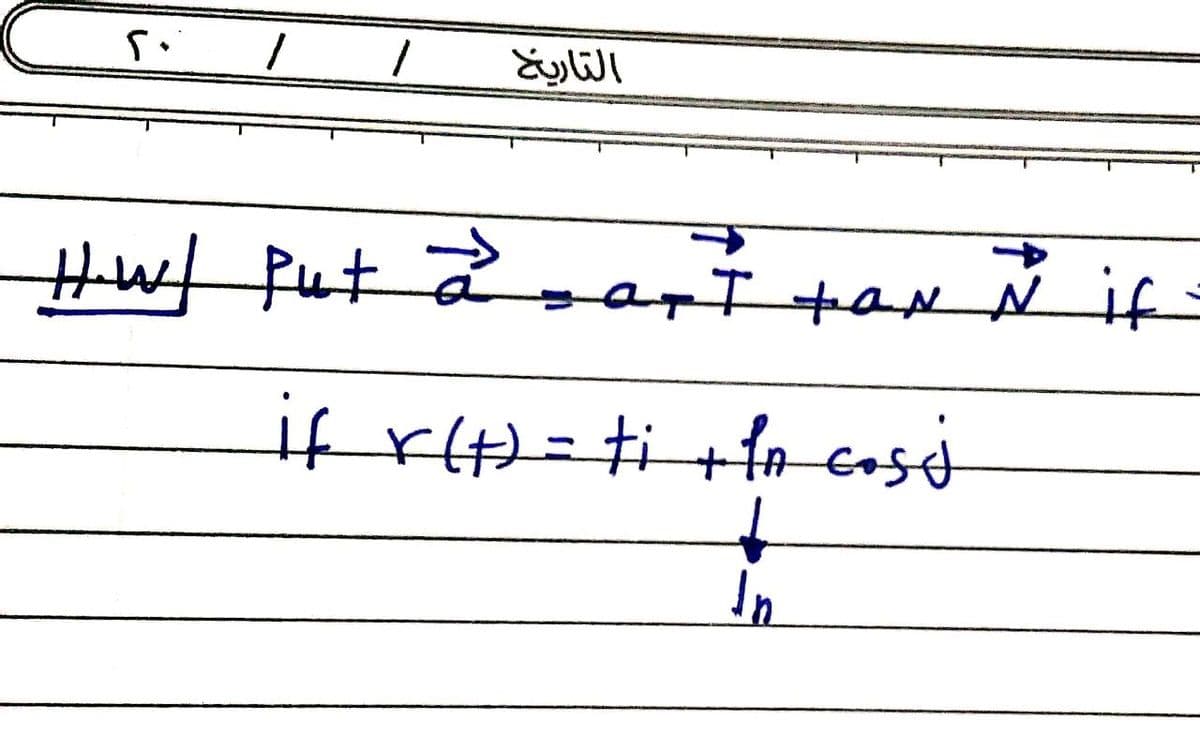 التاريخ / / ٢٠
H.W/ Put a⃗ = a_T T⃗ + a_N N⃗ if
if r(t) = ti + ln cos j
↓
ln